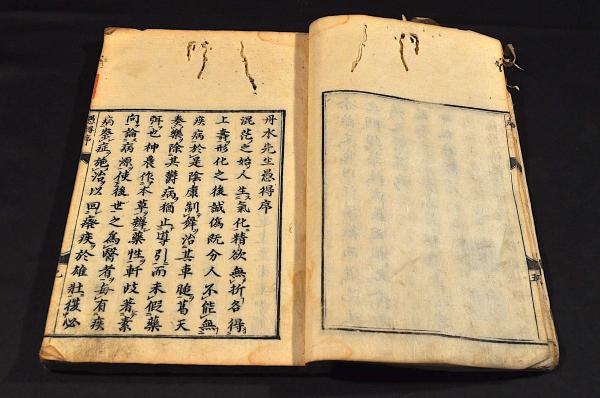 丹水先生愚得序
混茫之始人生氣化精欲無折各得
上壽形化之後誠偽既分人不能無
疾病於是陰康制舞治其重膇葛天
奏樂除其鬱病猶止導引而未假藥
也神農作本草辨藥性軒歧著素
問論病源使後世之為醫者每有疾
病察症施治以回瘵疾於雄壯援必
愚得序